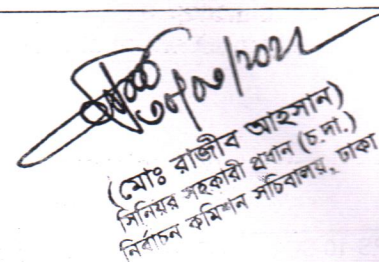 (মোঃ রাজীব আহসান)
সিনিয়র সহকারী প্রধান (চ.দা.)
নির্বাচন কমিশন সচিবালয়, ঢাকা